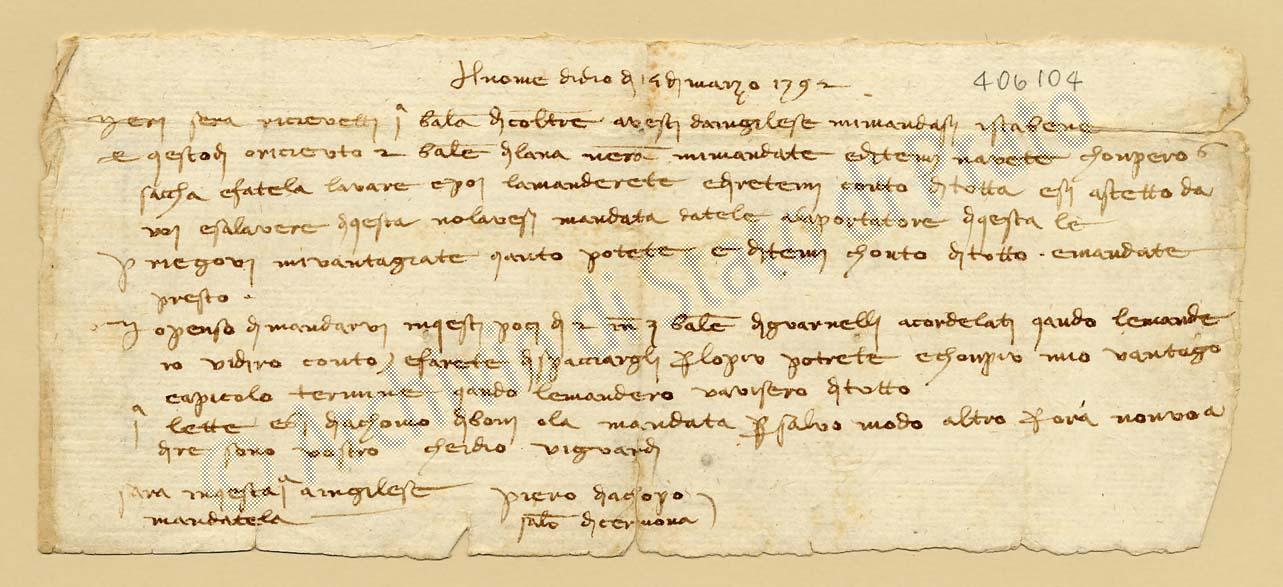 Al nome di dio di 15 di marzo 1392
406104
Ieri sera ricievetti i bala di coltre avesti da ingilese mi mandasti ista bene
E questo di o ricievto 2 bale di lana nera mi mandate e ditemi n avete chonpero 6
saccha e fatela lavare e poi la manderete e direte mi conto di totta e si aspetto da
voi e s alavere di questa no l avesti mandata datele a aportatore di questa le
Priegovi mi vantagiate quanto potete e ditemi chonto di totto e mandate
presto
Io penso di mandarvi in questi poci di 2 in 3 bale di guarnelli acordelati quando le mande
ro vi diro conto e farete di spacciargli per lo piu potrete e chon piu mio vantago
e a picolo termine quando le mandero v avisero di totto
i lette di achomo di boni o la mandata per salvo modo altro per ora non vo a
dire sono vostro che idio vi guardi
sara in questa i a ingilese
mandatela
Piero di achopo
di cermona
© Archivio di Stato di Prato